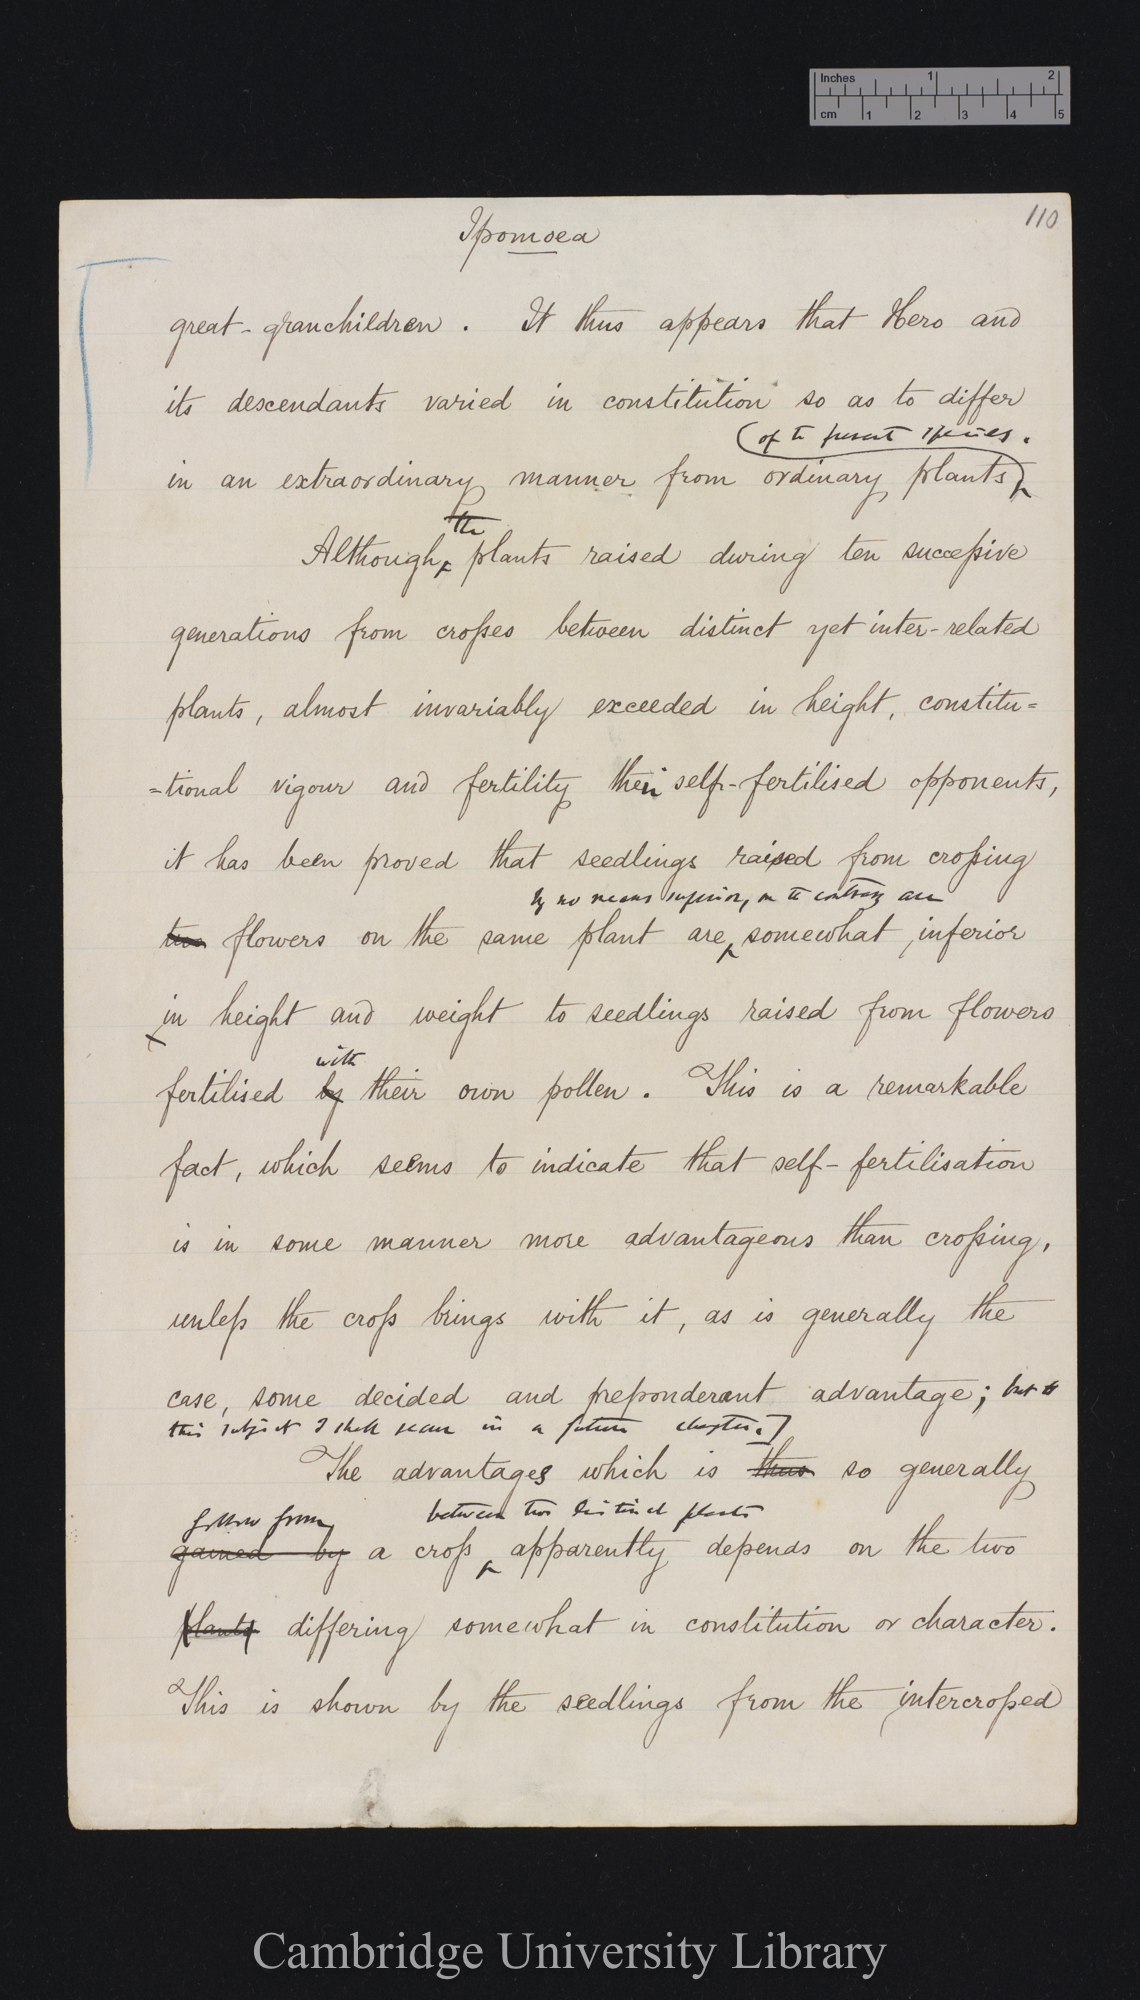 Inches 1 2
cm 1 2 3 4 5
110
Ipomoea
great-granchildren. It thus appears that Hero and
its descendants varied in constitution so as to differ
of the present species.
in an extraordinary manner from ordinary plants
the
Although plants raised during ten successive
generations from crosses between distinct yet inter-related
plants, almost invariably exceeded in height, constitu=
=tional vigour and fertility their self-fertilised opponents,
it has been proved that seedlings raised from crossing
by no means superior, on the contrary are
two flowers on the same plant are somewhat inferior
in height and weight to seedlings raised from flowers
with
fertilised by their own pollen. This is a remarkable
fact, which seems to indicate that self-fertilisation
is in some manner more advantageous than crossing,
unless the cross brings with it, as is generally the
case, some decided and preponderant advantage; but to
this subject I shall recur in a future chapter.]
The advantages which is thus so generally
follow from between two distinct plants
gained by a cross apparently depends on the two
plants differing somewhat in constitution or character.
This is shown by the seedlings from the intercrossed
Cambridge University Library